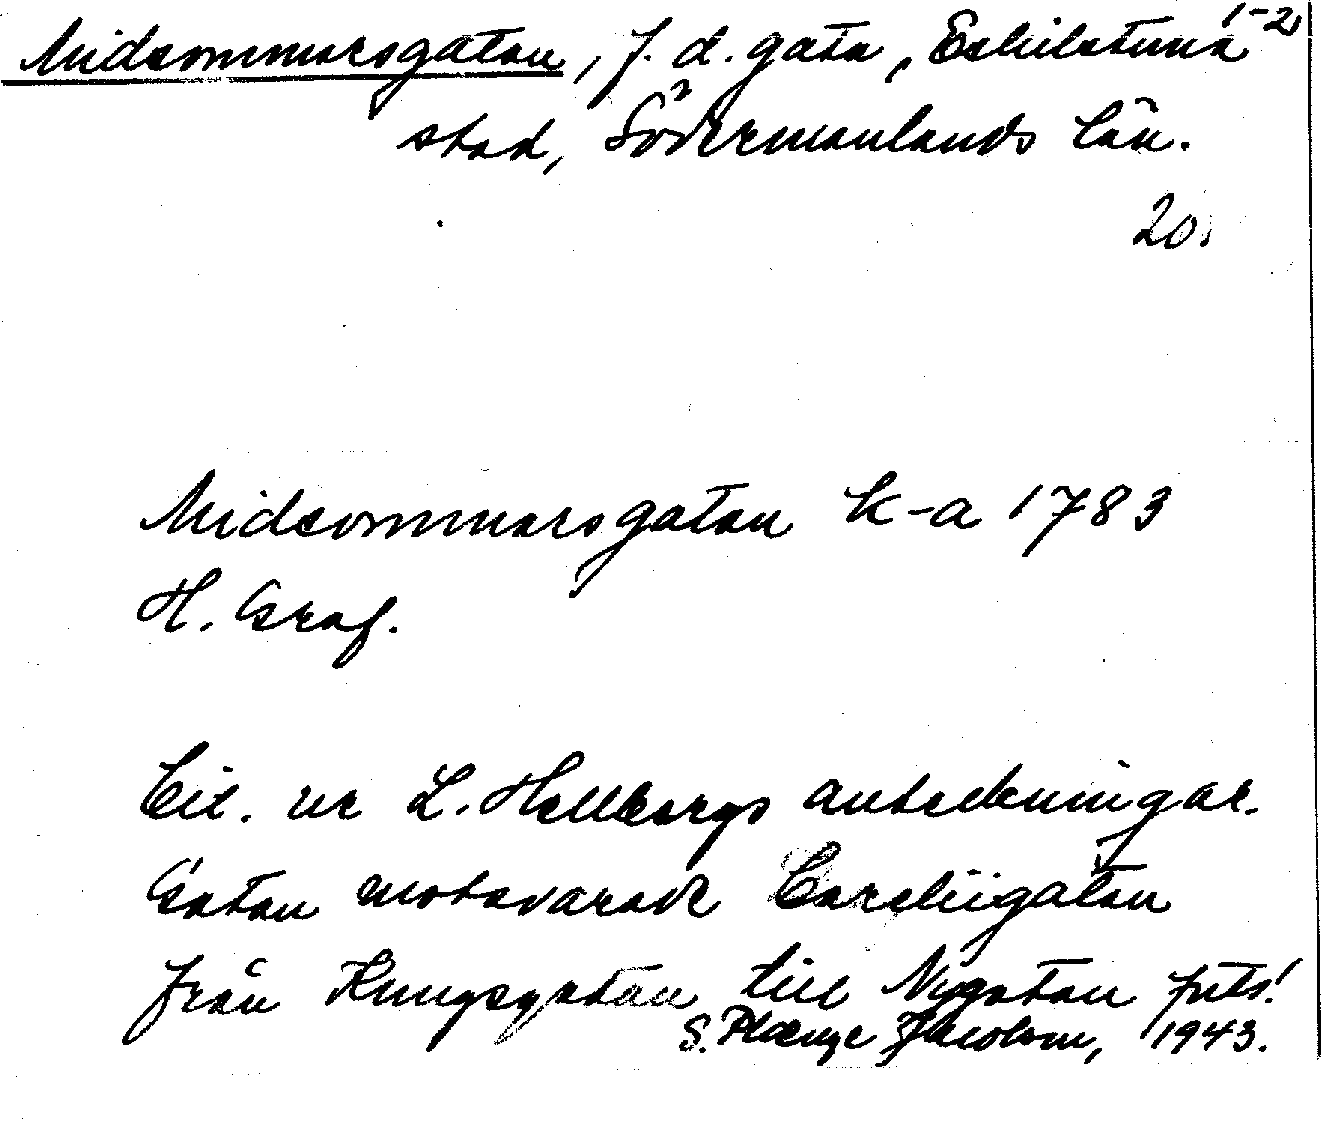 Midsommarsgatan, f. d. gata, Eskilstuna 1-2
stad, Södermanlands län.
20.
Midsommarsgatan k-a 1783
H. Graf.
Cit. ur L. Hellbergs anteckningar.
Gatan motsvarade Careliigatan
från Kungsgatan till Nygatan
S. Jacobson, 1943.